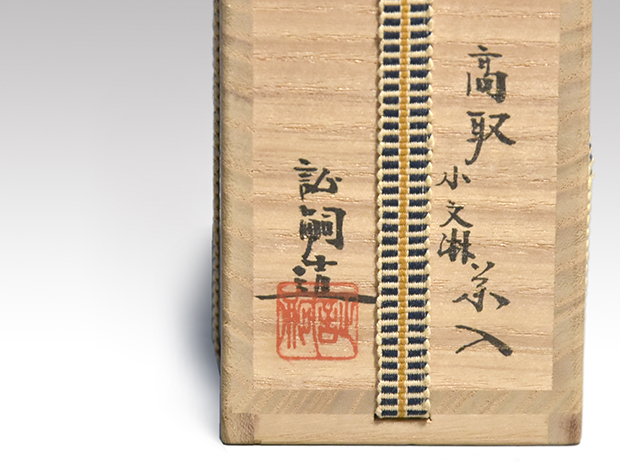 高取
小文淋茶入
訟嗣造